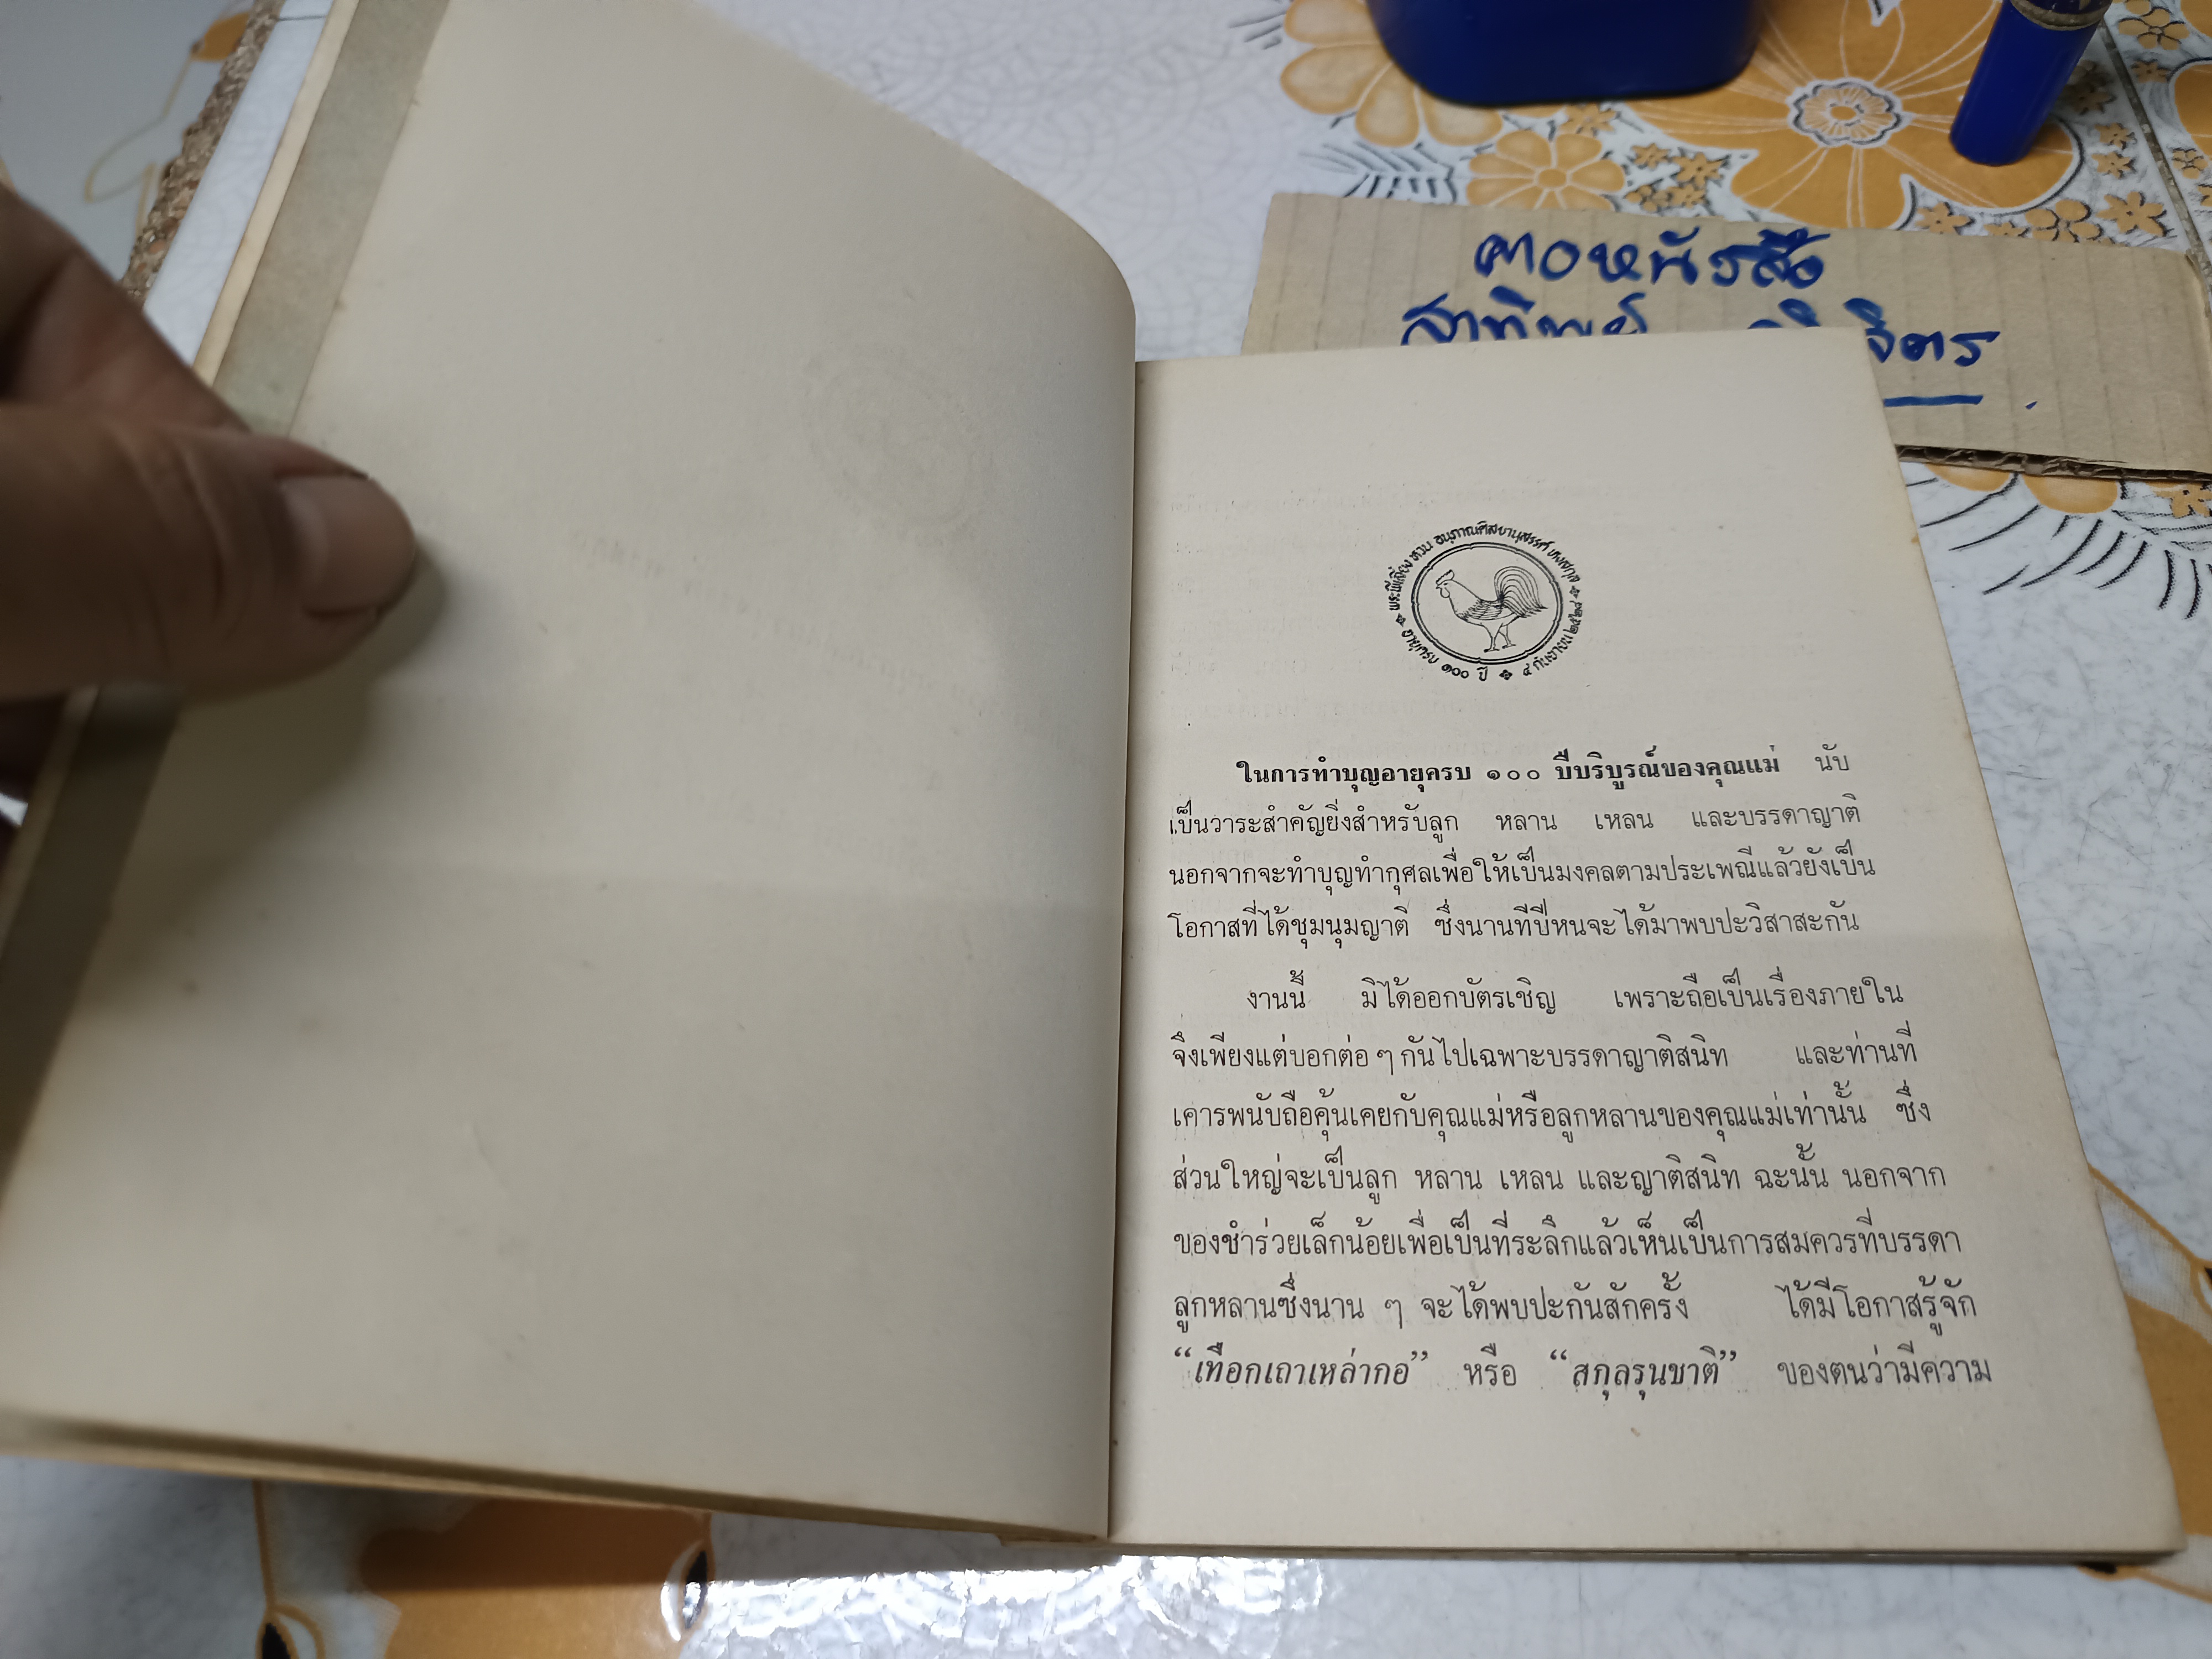 คอหนังสือ
สาทิพย์ วิจิตร
พระพี่เลี้ยง หวน อนุภาณศิสยานุสรรค์ หงสกุล
อายุครบ ๑๐๐ ปี
๔ กันยายน ๒๕๒๘
ในการทำบุญอายุครบ ๑๐๐ ปีบริบูรณ์ของคุณแม่ นับ
เป็นวาระสำคัญยิ่งสำหรับลูก หลาน เหลน และบรรดาญาติ
นอกจากจะทำบุญทำกุศลเพื่อให้เป็นมงคลตามประเพณีแล้วยังเป็น
โอกาสที่ได้ชุมนุมญาติ ซึ่งนานทีปีหนจะได้มาพบปะวิสาสะกัน
งานนี้ มิได้ออกบัตรเชิญ เพราะถือเป็นเรื่องภายใน
จึงเพียงแต่บอกต่อ ๆ กันไปเฉพาะบรรดาญาติสนิท และท่านที่
เคารพนับถือคุ้นเคยกับคุณแม่หรือลูกหลานของคุณแม่เท่านั้น ซึ่ง
ส่วนใหญ่จะเป็นลูก หลาน เหลน และญาติสนิท ฉะนั้น นอกจาก
ของชำร่วยเล็กน้อยเพื่อเป็นที่ระลึกแล้วเห็นเป็นการสมควรที่บรรดา
ลูกหลานซึ่งนาน ๆ จะได้พบปะกันสักครั้ง ได้มีโอกาสรู้จัก
“เทือกเถาเหล่ากอ” หรือ “สกุลรุนชาติ” ของตนว่ามีความ